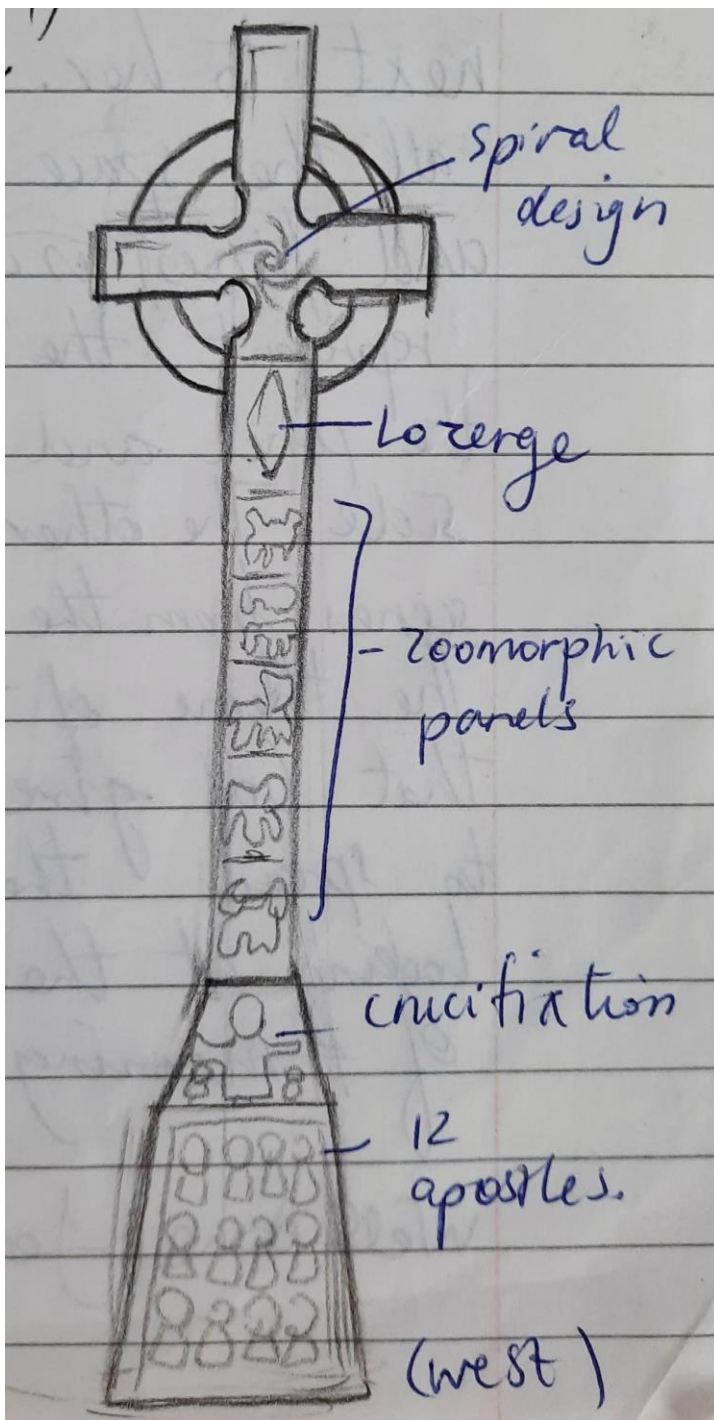 1)
spiral
design
Lozerge
zoomorphic
panels
crucifixtion
12
apostles.
(west)